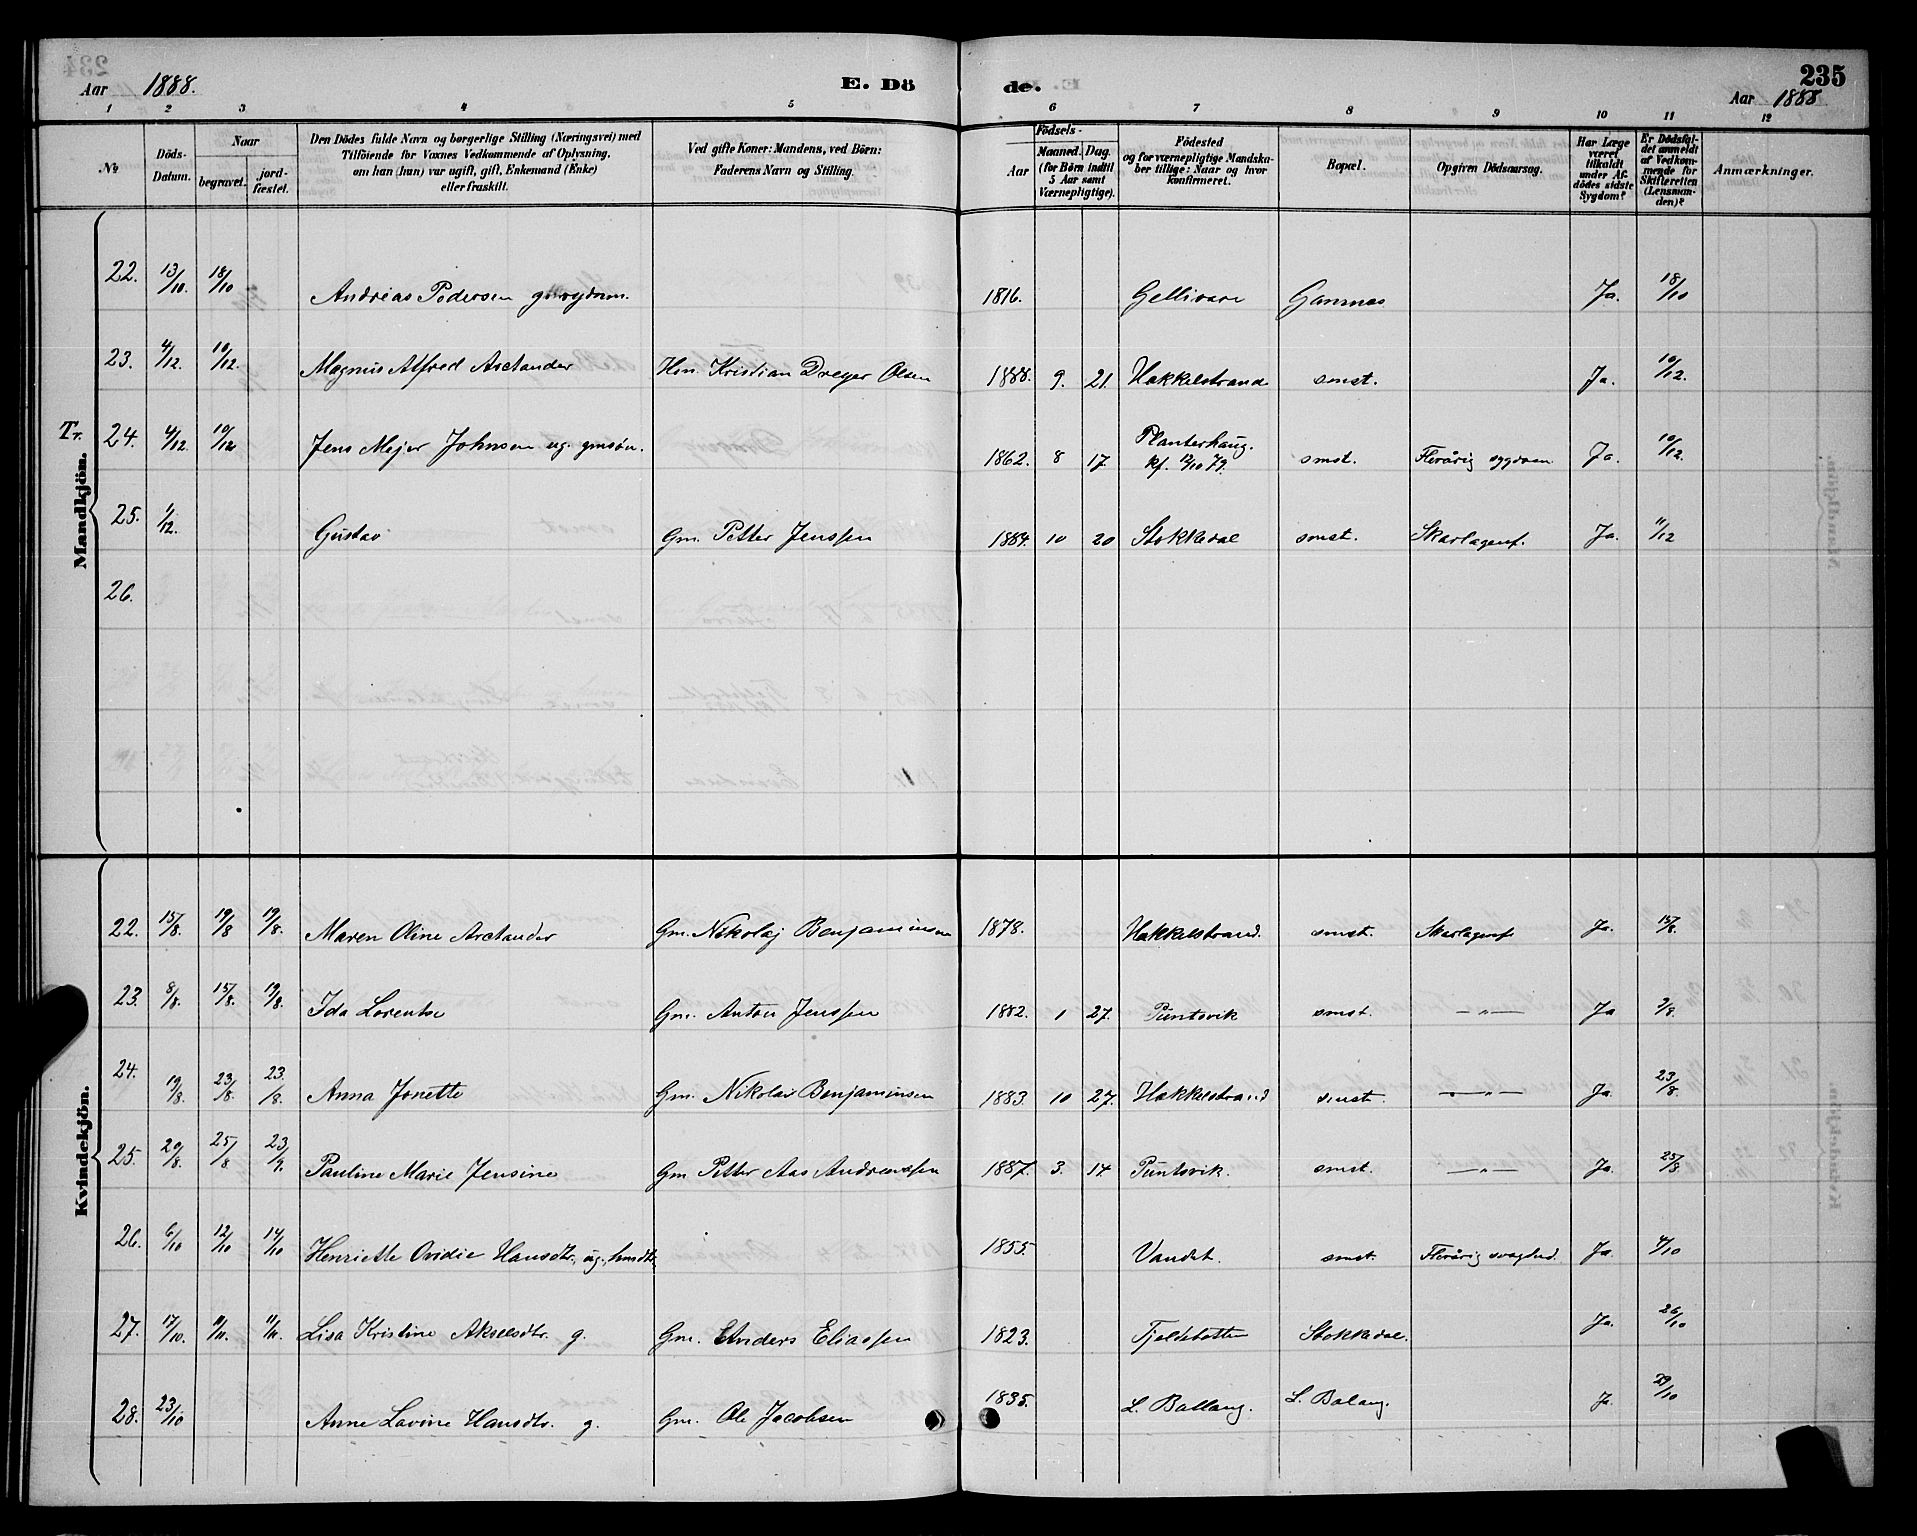 Aar 1888. E. Dö de. 235
Aar 1888
1 2 3 4 5 6 7 8 9 10 11 12
No
Döds-Datum.
Naar
begravet.
jord-fæstet.
Den Dödes fulde Navn og borgerlige Stilling (Næringsvei) med
Tilföiende for Voxnes Vedkommende af Oplysning,
om han (hun) var ugift, gift, Enkemand (Enke)
eller fraskilt.
Ved gifte Koner: Mandens, ved Börn:
Faderens Navn og Stilling.
Födsels-
Aar
Maaned. Dag.
(for Börn indtil
5 Aar samt
Værnepligtige).
Födested
og for værnepligtige Mandska-
ber tillige: Naar og hvor
konfirmeret.
Bopæl.
Opgiven Dödsaarsag.
Har Læge
været
tilkaldt
under Af-
dödes sidste
Sygdom?
Er Dödsfal-
det anmeldt
af Vedkom-
mende for
Skifteretten
(Lensman-
den)?
Anmærkninger.
Mandkjön.
22. 13/10. 18/10 Andreas Pedersen 1816. Gellivare Ja. 18/10
23. 4/12. 10/12. Magnus Alfred Arctander Kristian Dreyer Olsen 1888. 9. 21. Hakkelstrand smst. Ja. 10/12.
Tr. 24. 4/12. 10/12 Jens Mejer Johnsen ug. gmsön. 1862. 8 17. Planterhaug. kf. 12/10 79. smst. Flerårig sygdom Ja. 10/12.
25. 1/12. Gustav Gm. Petter Jenssen 1884. 10 20 Stokkedal smst. Skarlagensf. Ja. 11/12
26.
Kvindekjön.
22. 15/8. 19/8 19/8. Maren Oline Arctander Gm. Nikolaj Benjaminsen 1878. Hakkelstrand. smst. Skarlagensf. Ja. 15/8.
23. 8/8. 15/8. 19/8. Ida Lorentse Gm. Anton Jenssen 1882. 1 27. Puntsvik smst. —„— Ja
24. 19/8. 23/8. 23/8. Anna Jonette Gm. Nikolai Benjaminsen 1883. 10 27. Hakkelstrand smst. —„— Ja. 23/8.
25. 20/8. 25/8 23/9. Pauline Marie Jensine Gm. Petter Aas Andreassen 1887. 3. 14. Puntsvik. smst. —„— Ja. 25/8.
26. 6/10 12/10 14/10 Henriette Ovidie Hansdtr., ug., 1855. Vandet. smst. Flerårig svaghed. Ja.
27. 17/10. 11/11. 11/11. Lisa Kristine Akselsdtr. g. Gm. Anders Eliassen 1823. Tjeldebotten Stokkedal. Ja. 26/10
28. 23/10 Anne Lavine Hansdtr. g. Gm. Ole Jacobsen 1835. L. Ballang. L. Balang. Ja. 29/10